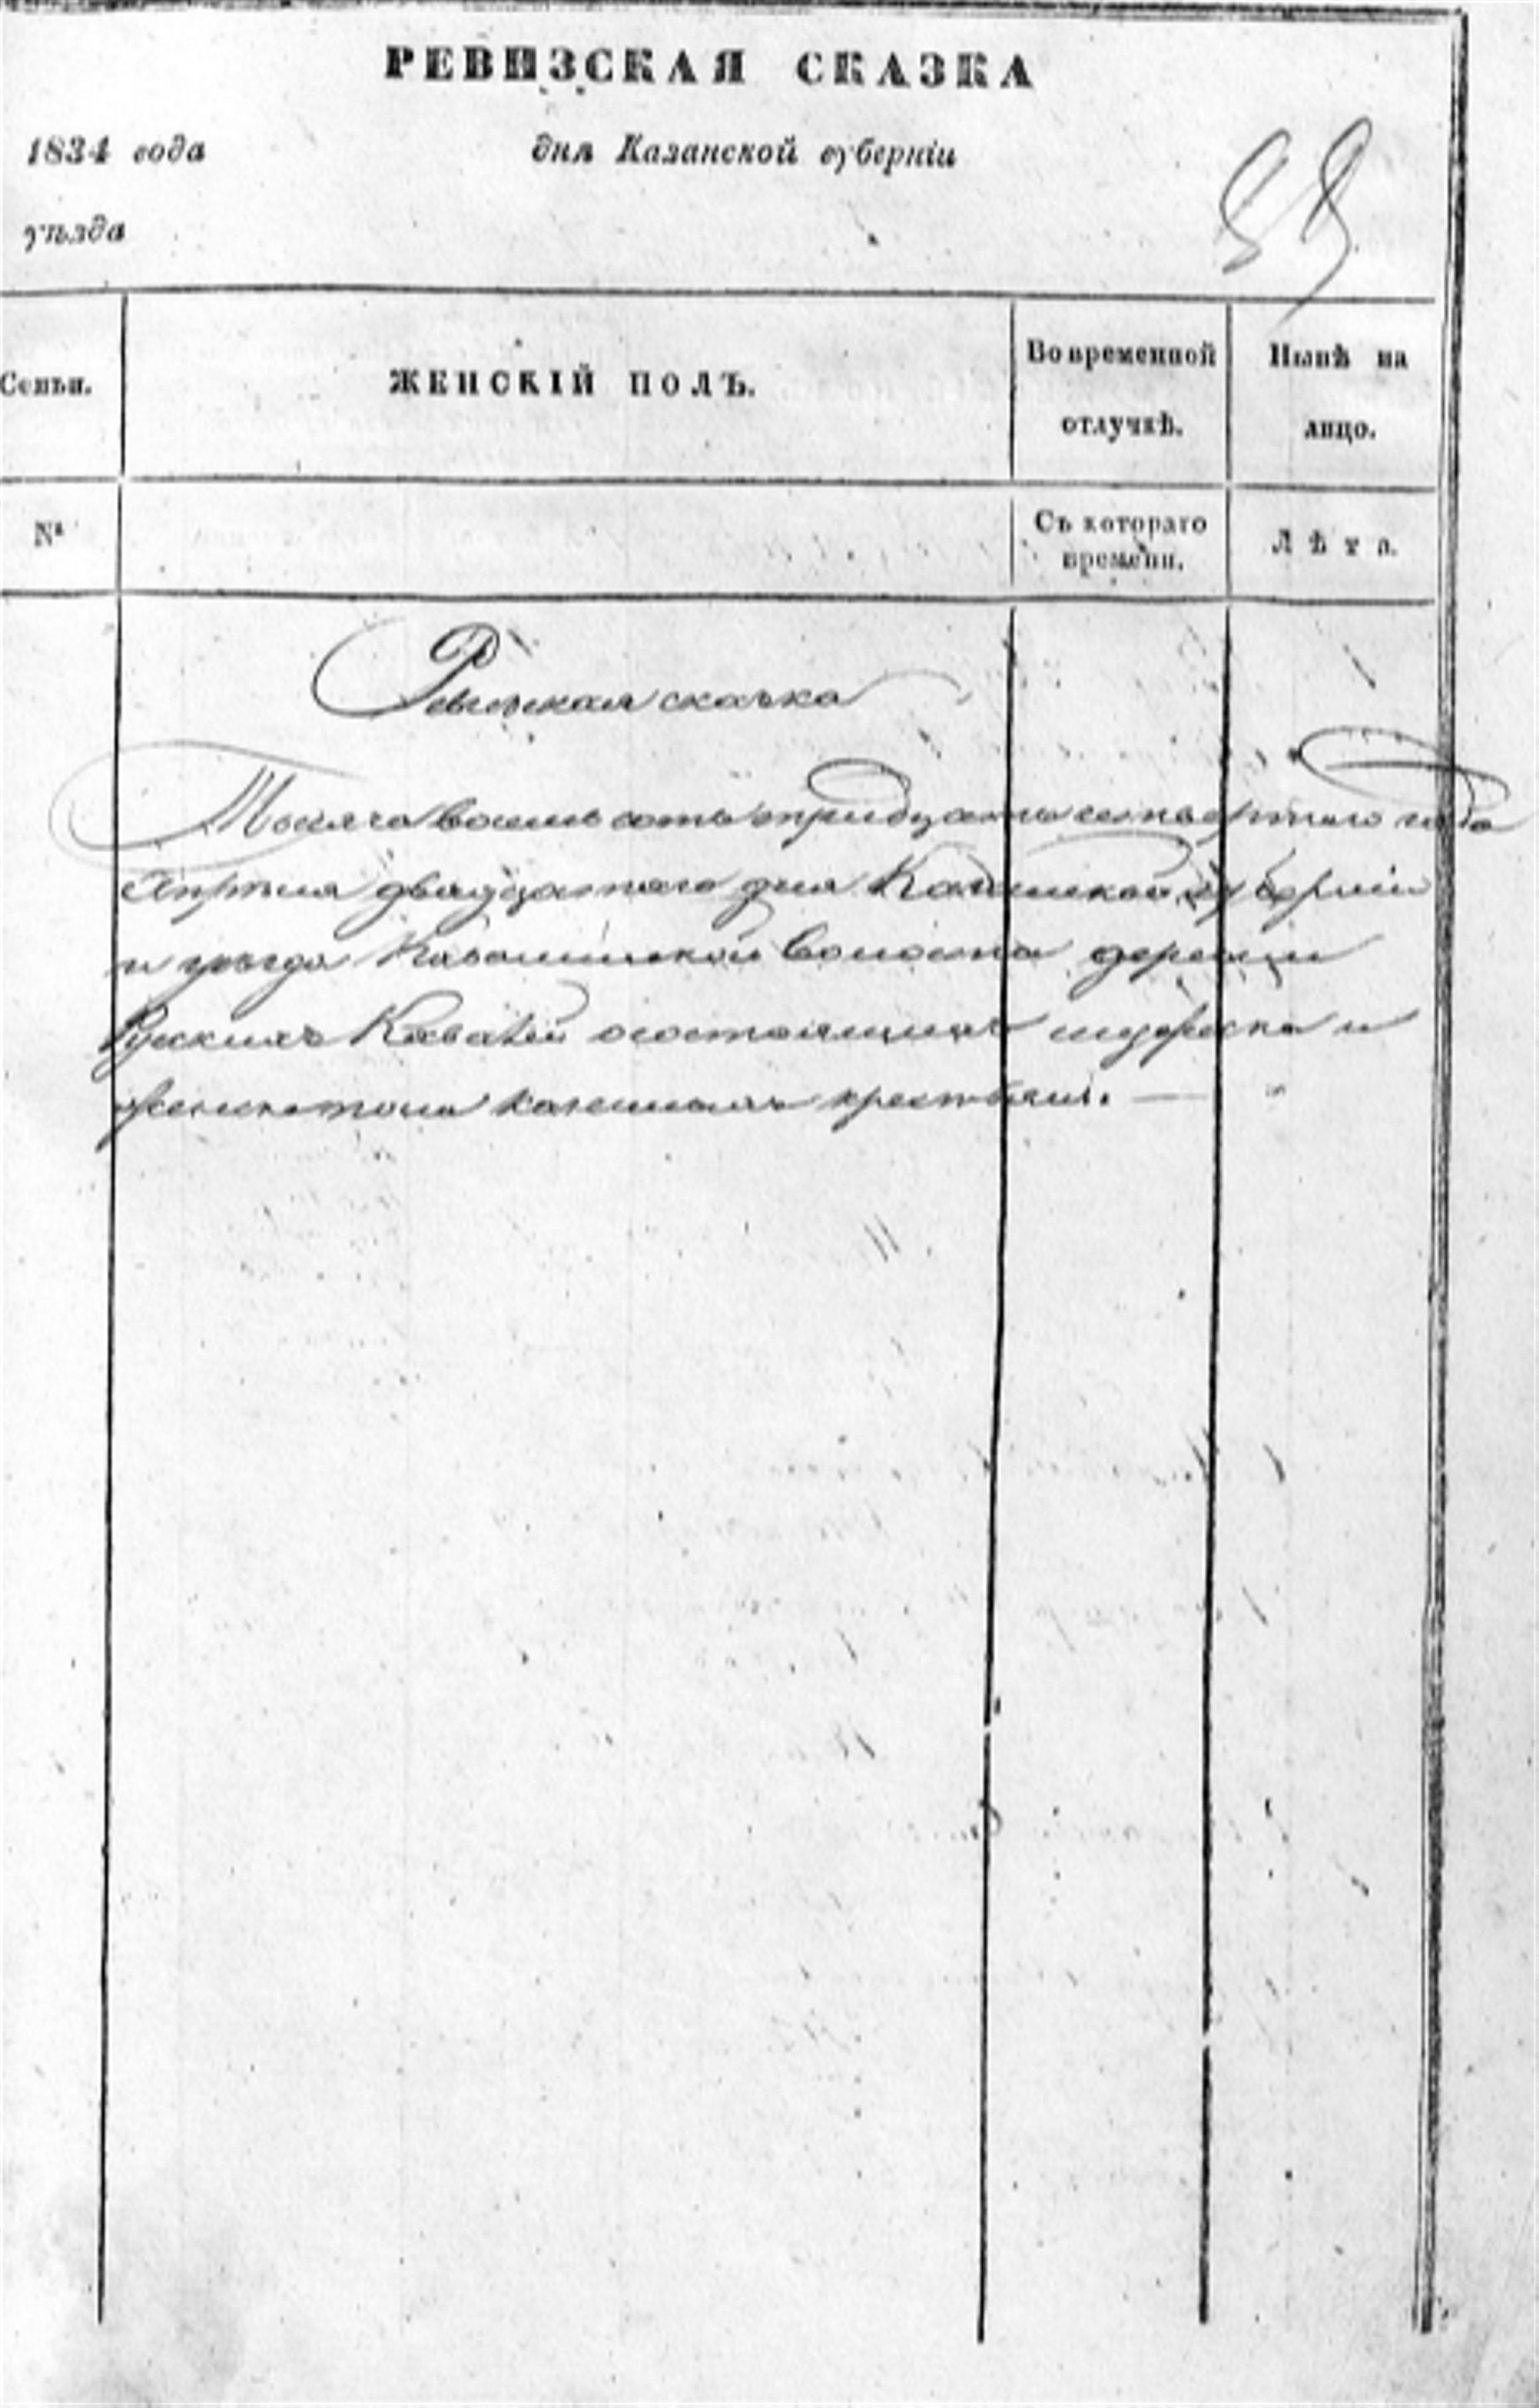 РЕВИЗСКАЯ СКАЗКА
1834 года дня Казанской губерніи
уѣзда
Семьи. ЖЕНСКІЙ ПОЛЪ. Во временной отлучкѣ. Нынѣ на лицо.
№ Съ котораго времени. Лѣта.
Ревизская сказка
Тысяча восемь сотъ тридцать четвертаго года
Апрѣля двадцатаго дня Казанской губерніи
и уѣзда волости деревни
Рускихъ состоящихъ мужеска и
женска пола казенныхъ крестьянъ.